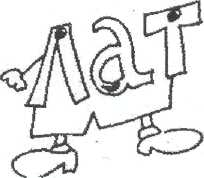 Лат